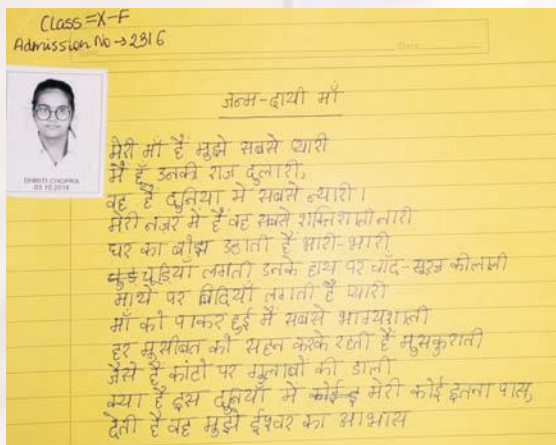 Class = X-F
Admission No → 2316
Date
DHRITI CHOPRA
03.10.2019
जन्म-दायी माँ
मेरी माँ है मुझे सबसे प्यारी
मैं हूँ उनकी राज दुलारी,
वह है दुनिया में सबसे न्यारी।
मेरी नज़र में है वह सबसे शक्तिशाली नारी
घर का बोझ उठाती है भारी-भारी,
चुडियाँ लगती उनके हाथ पर चाँद-सूरज की लाली
माथे पर बिंदियाँ लगती है प्यारी
माँ को पाकर हुई मैं सबसे भाग्यशाली
हर मुसीबत को सहन करके रहती है मुसकुराती
जैसे है कांटो पर गुलाबों की डाली
क्या है इस दुनियाँ में मेरी कोई इतना पास,
देती है वह मुझे ईश्वर का आभास